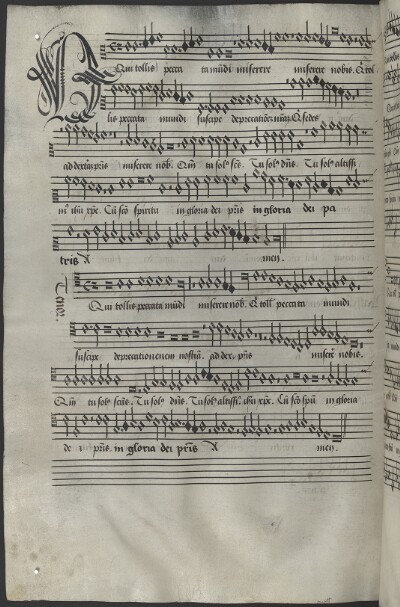 Qui tollis pecca ta mūdi miserere miserere nobis. Q tol
lis peccata mundi suscipe deprecationē Q sedes
ad dexterā pr̄is miserere nob. Qm̄ tu sol⁹ sc̄s. Tu sol⁹ dn̄s. Tu sol⁹ altissi
m⁹ ihu xp̄e. Cū sc̄o spiritu in gloria dei pr̄is in gloria dei pa
tris A men.
Qui tollis peccata mūdi miserere nob. Q toll peccata mundi
suscipe deprecationem nostrā. ad dex. pr̄is miserē nobis.
Qm̄ tu sol⁹ sctūs. Tu sol⁹ dn̄s. Tu sol⁹ altiss. ihu xp̄e. Cū sc̄o spū in gloria
de i pr̄is. in gloria dei pr̄is A men.